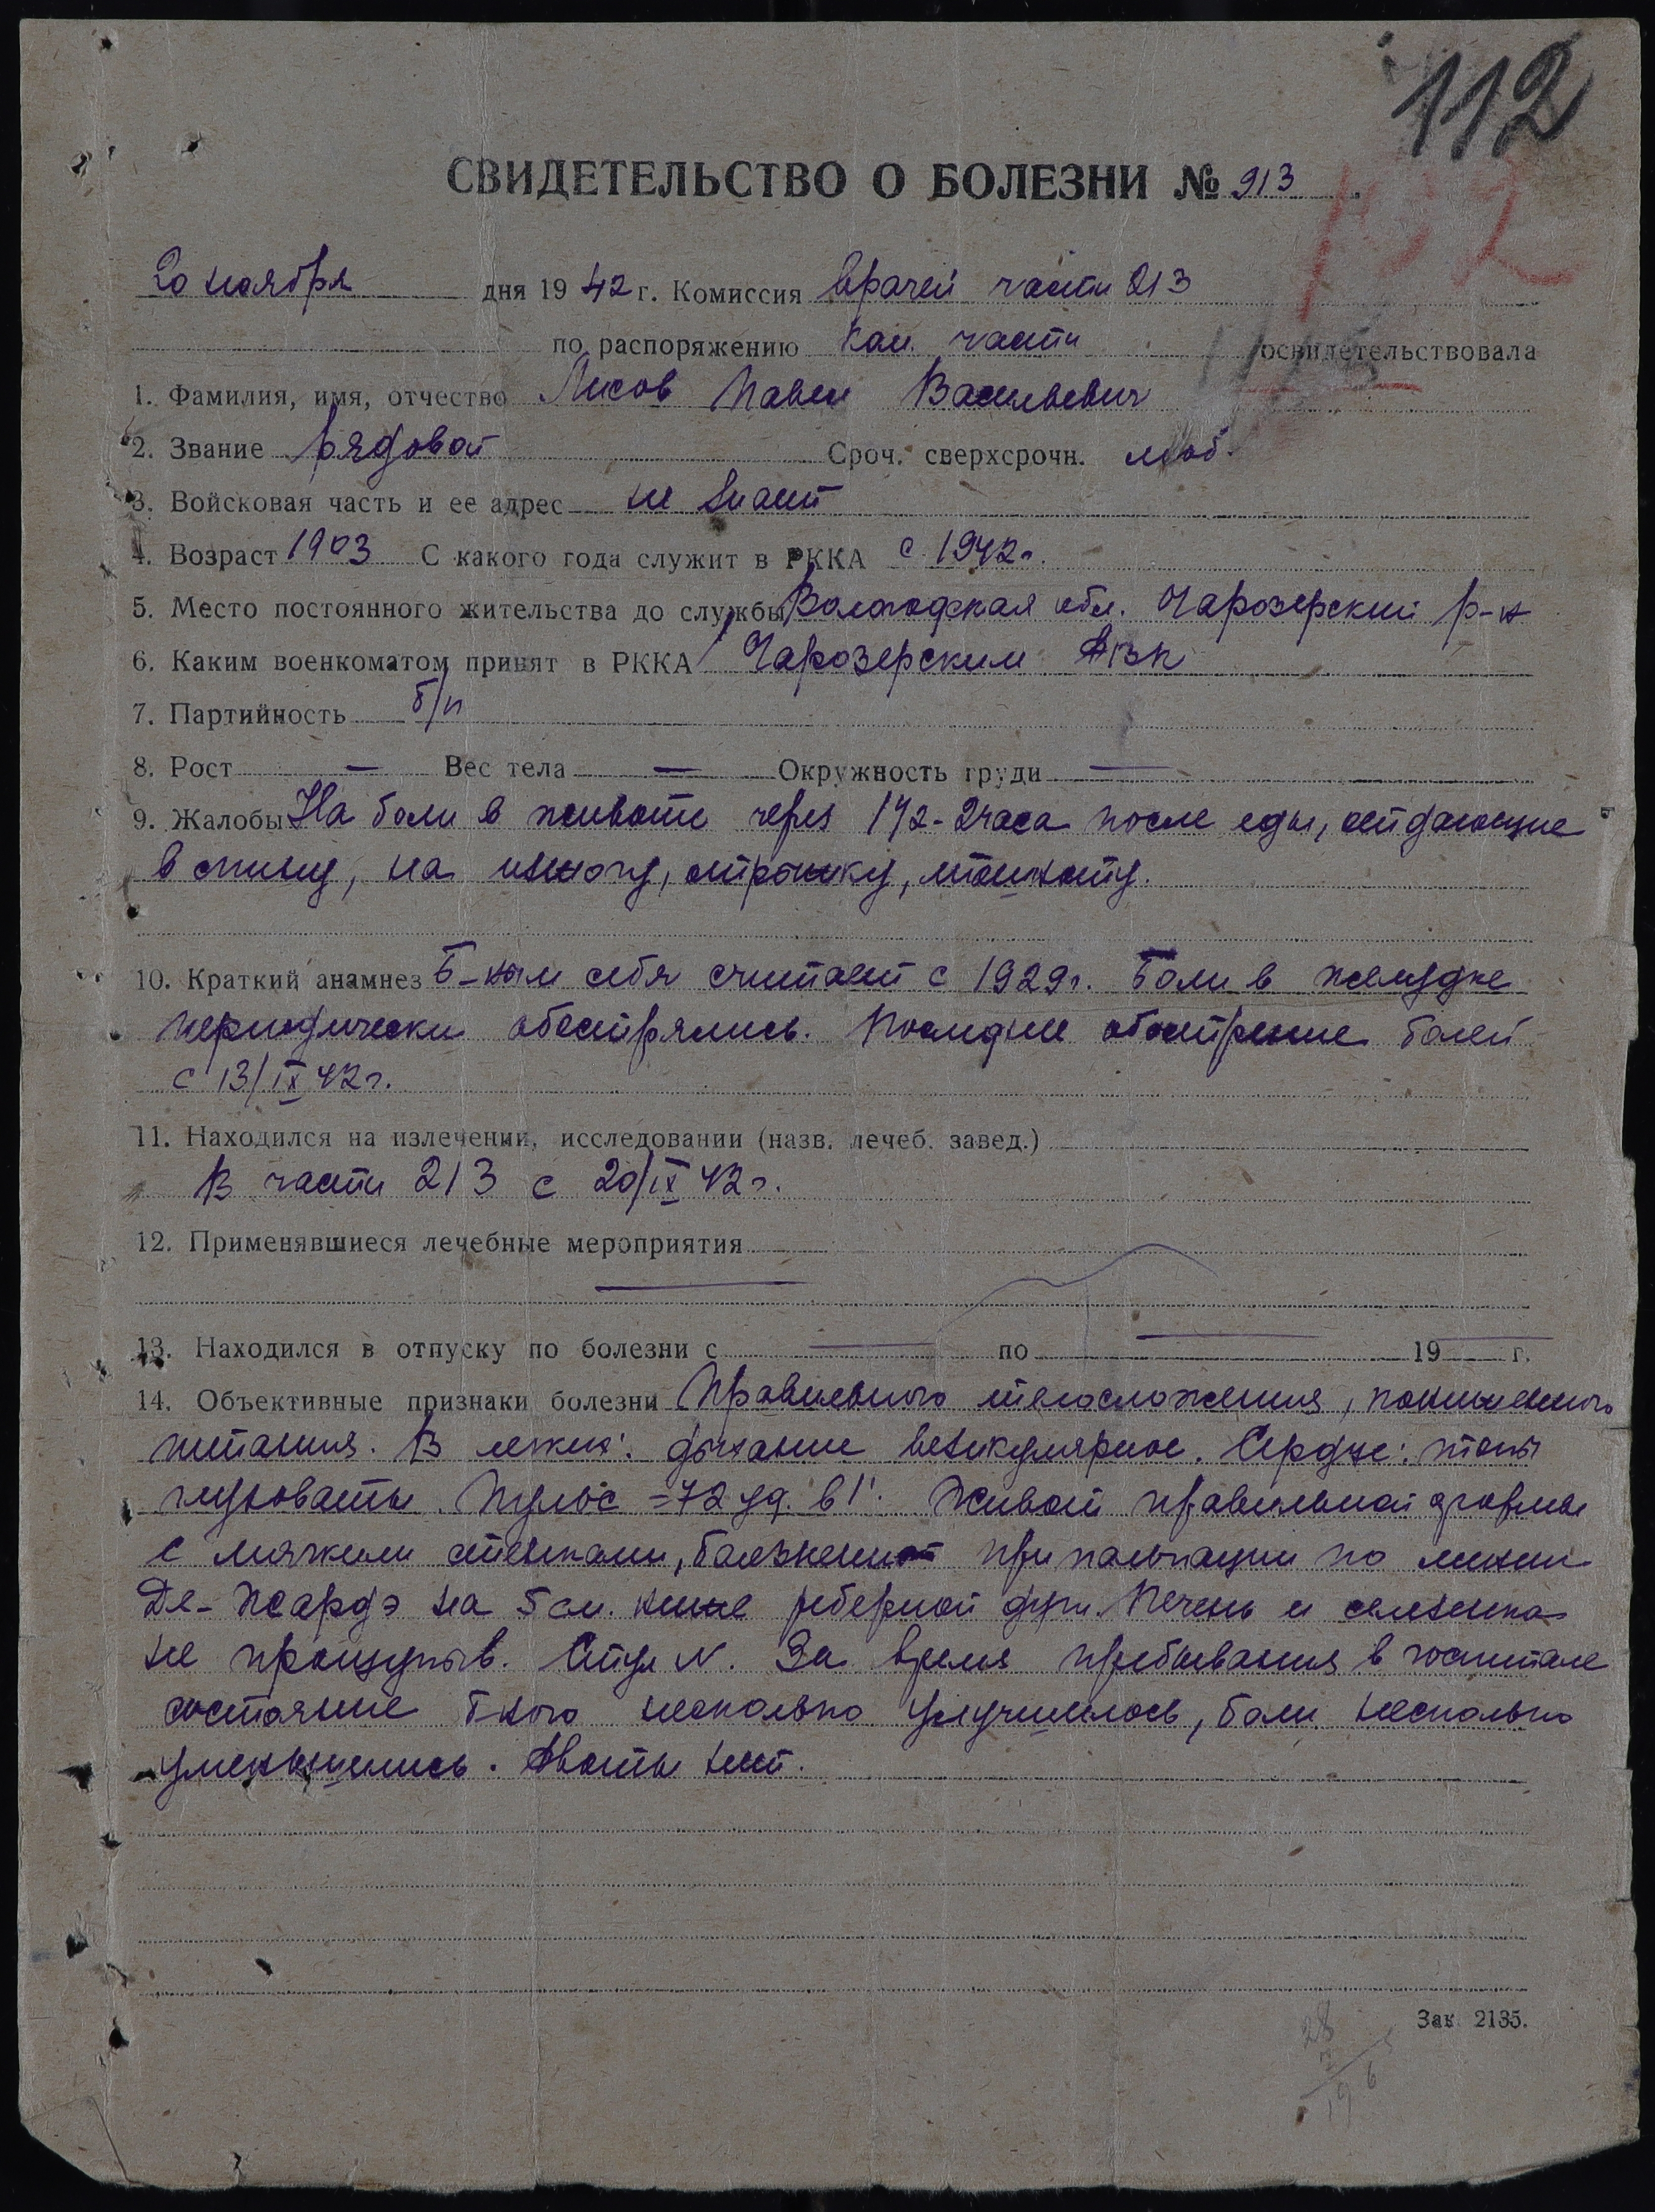 112
СВИДЕТЕЛЬСТВО О БОЛЕЗНИ № 913
20 ноября дня 1942 г. Комиссия врачей части 213
по распоряжению нач. части освидетельствовала
1. Фамилия, имя, отчество Лисов Павел Васильевич
2. Звание рядовой Сроч. сверхсрочн. моб.
3. Войсковая часть и ее адрес не знает
4. Возраст 1903 С какого года служит в РККА с 1942 г.
5. Место постоянного жительства до службы Вологодская обл. Чарозерский р-н
6. Каким военкоматом принят в РККА Чарозерским РВК
7. Партийность б/п
8. Рост — Вес тела — Окружность груди —
9. Жалобы На боли в животе через 1 1/2 - 2 часа после еды, отдающие
в спину, на изжогу, отрыжку, тошноту.
10. Краткий анамнез Б-ным себя считает с 1929 г. Боли в желудке
периодически обострялись. Последнее обострение болей
с 13/IX 42 г.
11. Находился на излечении, исследовании (назв. лечеб. завед.)
В части 213 с 20/IX 42 г.
12. Применявшиеся лечебные мероприятия
—
13. Находился в отпуску по болезни с — по — 19 — г.
14. Объективные признаки болезни Правильного телосложения, пониженного
питания. В легких: дыхание везикулярное. Сердце: тоны
глуховаты. Пульс = 72 уд. в 1'. Живот правильной формы
с мягкими стенками, болезнен при пальпации по линии
Де-Жардэ на 5 см. ниже реберной дуги. Печень и селезенка
не прощупыв. Стул N. За время пребывания в госпитале
состояние б-ного несколько улучшилось, боли несколько
уменьшились. Рвоты нет.
Зак. 2135.
28
7
196